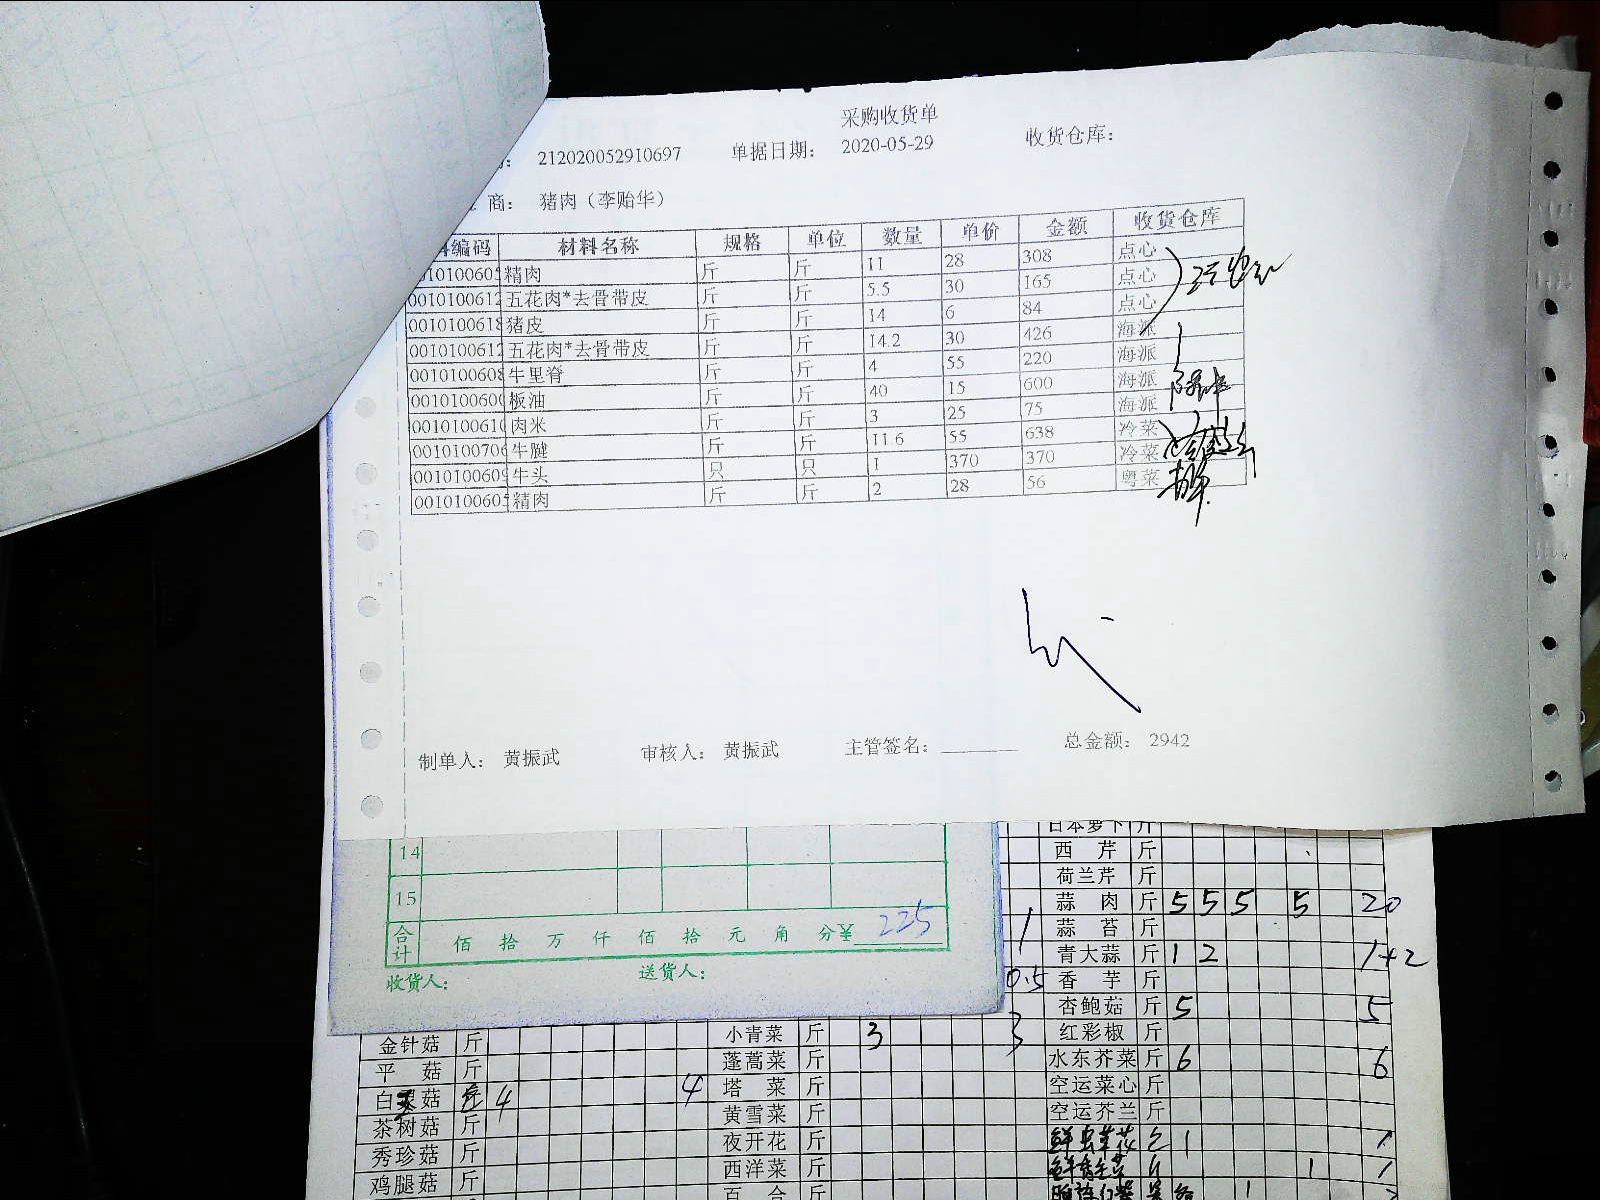 采购收货单
212020052910697 单据日期: 2020-05-29 收货仓库:
商: 猪肉(李贻华)
编码 材料名称 规格 单位 数量 单价 金额 收货仓库
精肉 斤 斤 11 28 308 点心
0010100612 五花肉*去骨带皮 斤 斤 5.5 30 165 点心
0010100618 猪皮 斤 斤 14 6 84 点心
0010100612 五花肉*去骨带皮 斤 斤 14.2 30 426 海派
0010100608 牛里脊 斤 斤 4 55 220 海派
001010060 板油 斤 斤 40 15 600 海派
0010100610 肉米 斤 斤 3 25 75 海派
001010070 牛腱 斤 斤 11.6 55 638 冷菜
001010060 牛头 只 只 1 370 370 冷菜
001010060 精肉 斤 斤 2 28 56 粤菜
制单人: 黄振武 审核人: 黄振武 主管签名: 总金额: 2942
14
15
合计 佰 拾 万 仟 佰 拾 元 角 分 ¥ 225
收货人: 送货人:
日本萝卜 斤
西芹 斤
荷兰芹 斤
蒜肉 斤 5 5 5 5 20
1 蒜苔 斤
青大蒜 斤 1 2 1+2
0.5 香芋 斤
杏鲍菇 斤 5 5
金针菇 斤 小青菜 斤 3 3 红彩椒 斤
平菇 斤 蓬蒿菜 斤 水东芥菜 斤 6 6
白 菇 4 4 塔菜 斤 空运菜心 斤
茶树菇 斤 黄雪菜 斤 空运芥兰 斤
秀珍菇 斤 夜开花 斤 1 1
鸡腿菇 斤 西洋菜 斤 1 1
百合 斤